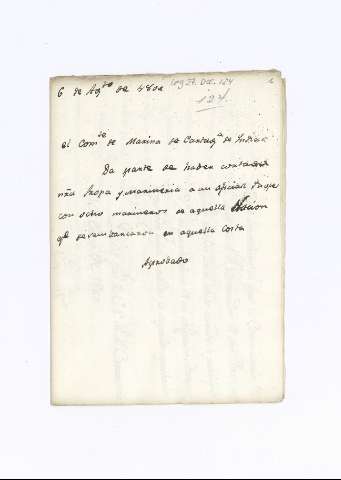 6 de Agto de 180
Leg 37. Doc. 124
124.
el Comte de Marina de Cartaga de Indias
Da parte de haber
ntra tropa y marineria a un oficial
con ocho marineros de aquella Nacion
qe desembarcaron en aquella Costa
Aprobado